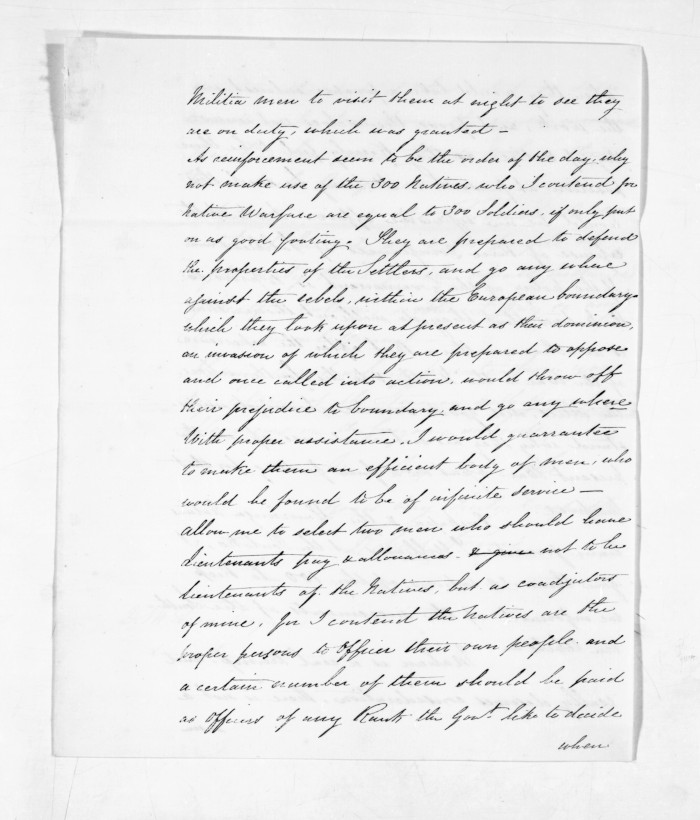 Militia men to visit them at night to see they
are on duty, which was granted –
As reinforcement seem to be the order of the day, why
not make use of the 300 Natives, who I contend for
Native Warfare are equal to 300 Soldiers, if only put
on as good footing. They are prepared to defend
the properties of the Settlers, and go any where
against the rebels, within the European boundary.
which they look upon at present as their dominion,
an invasion of which they are prepared to oppose
and once called into action, would throw off
their prejudice to boundary and go any where
With proper assistance, I would guarrantee
to make them an efficient body of men, who
would be found to be of infinite service –
allow me to select two men who should have
Lieutenants pay & allowances. & give not to be
Lieutenants of the Natives, but as coadjutors
of mine, for I contend the Natives are the
proper persons to Officer their own people and
a certain number of them should be paid
as Officers of any Rank the Govt. like to decide
when